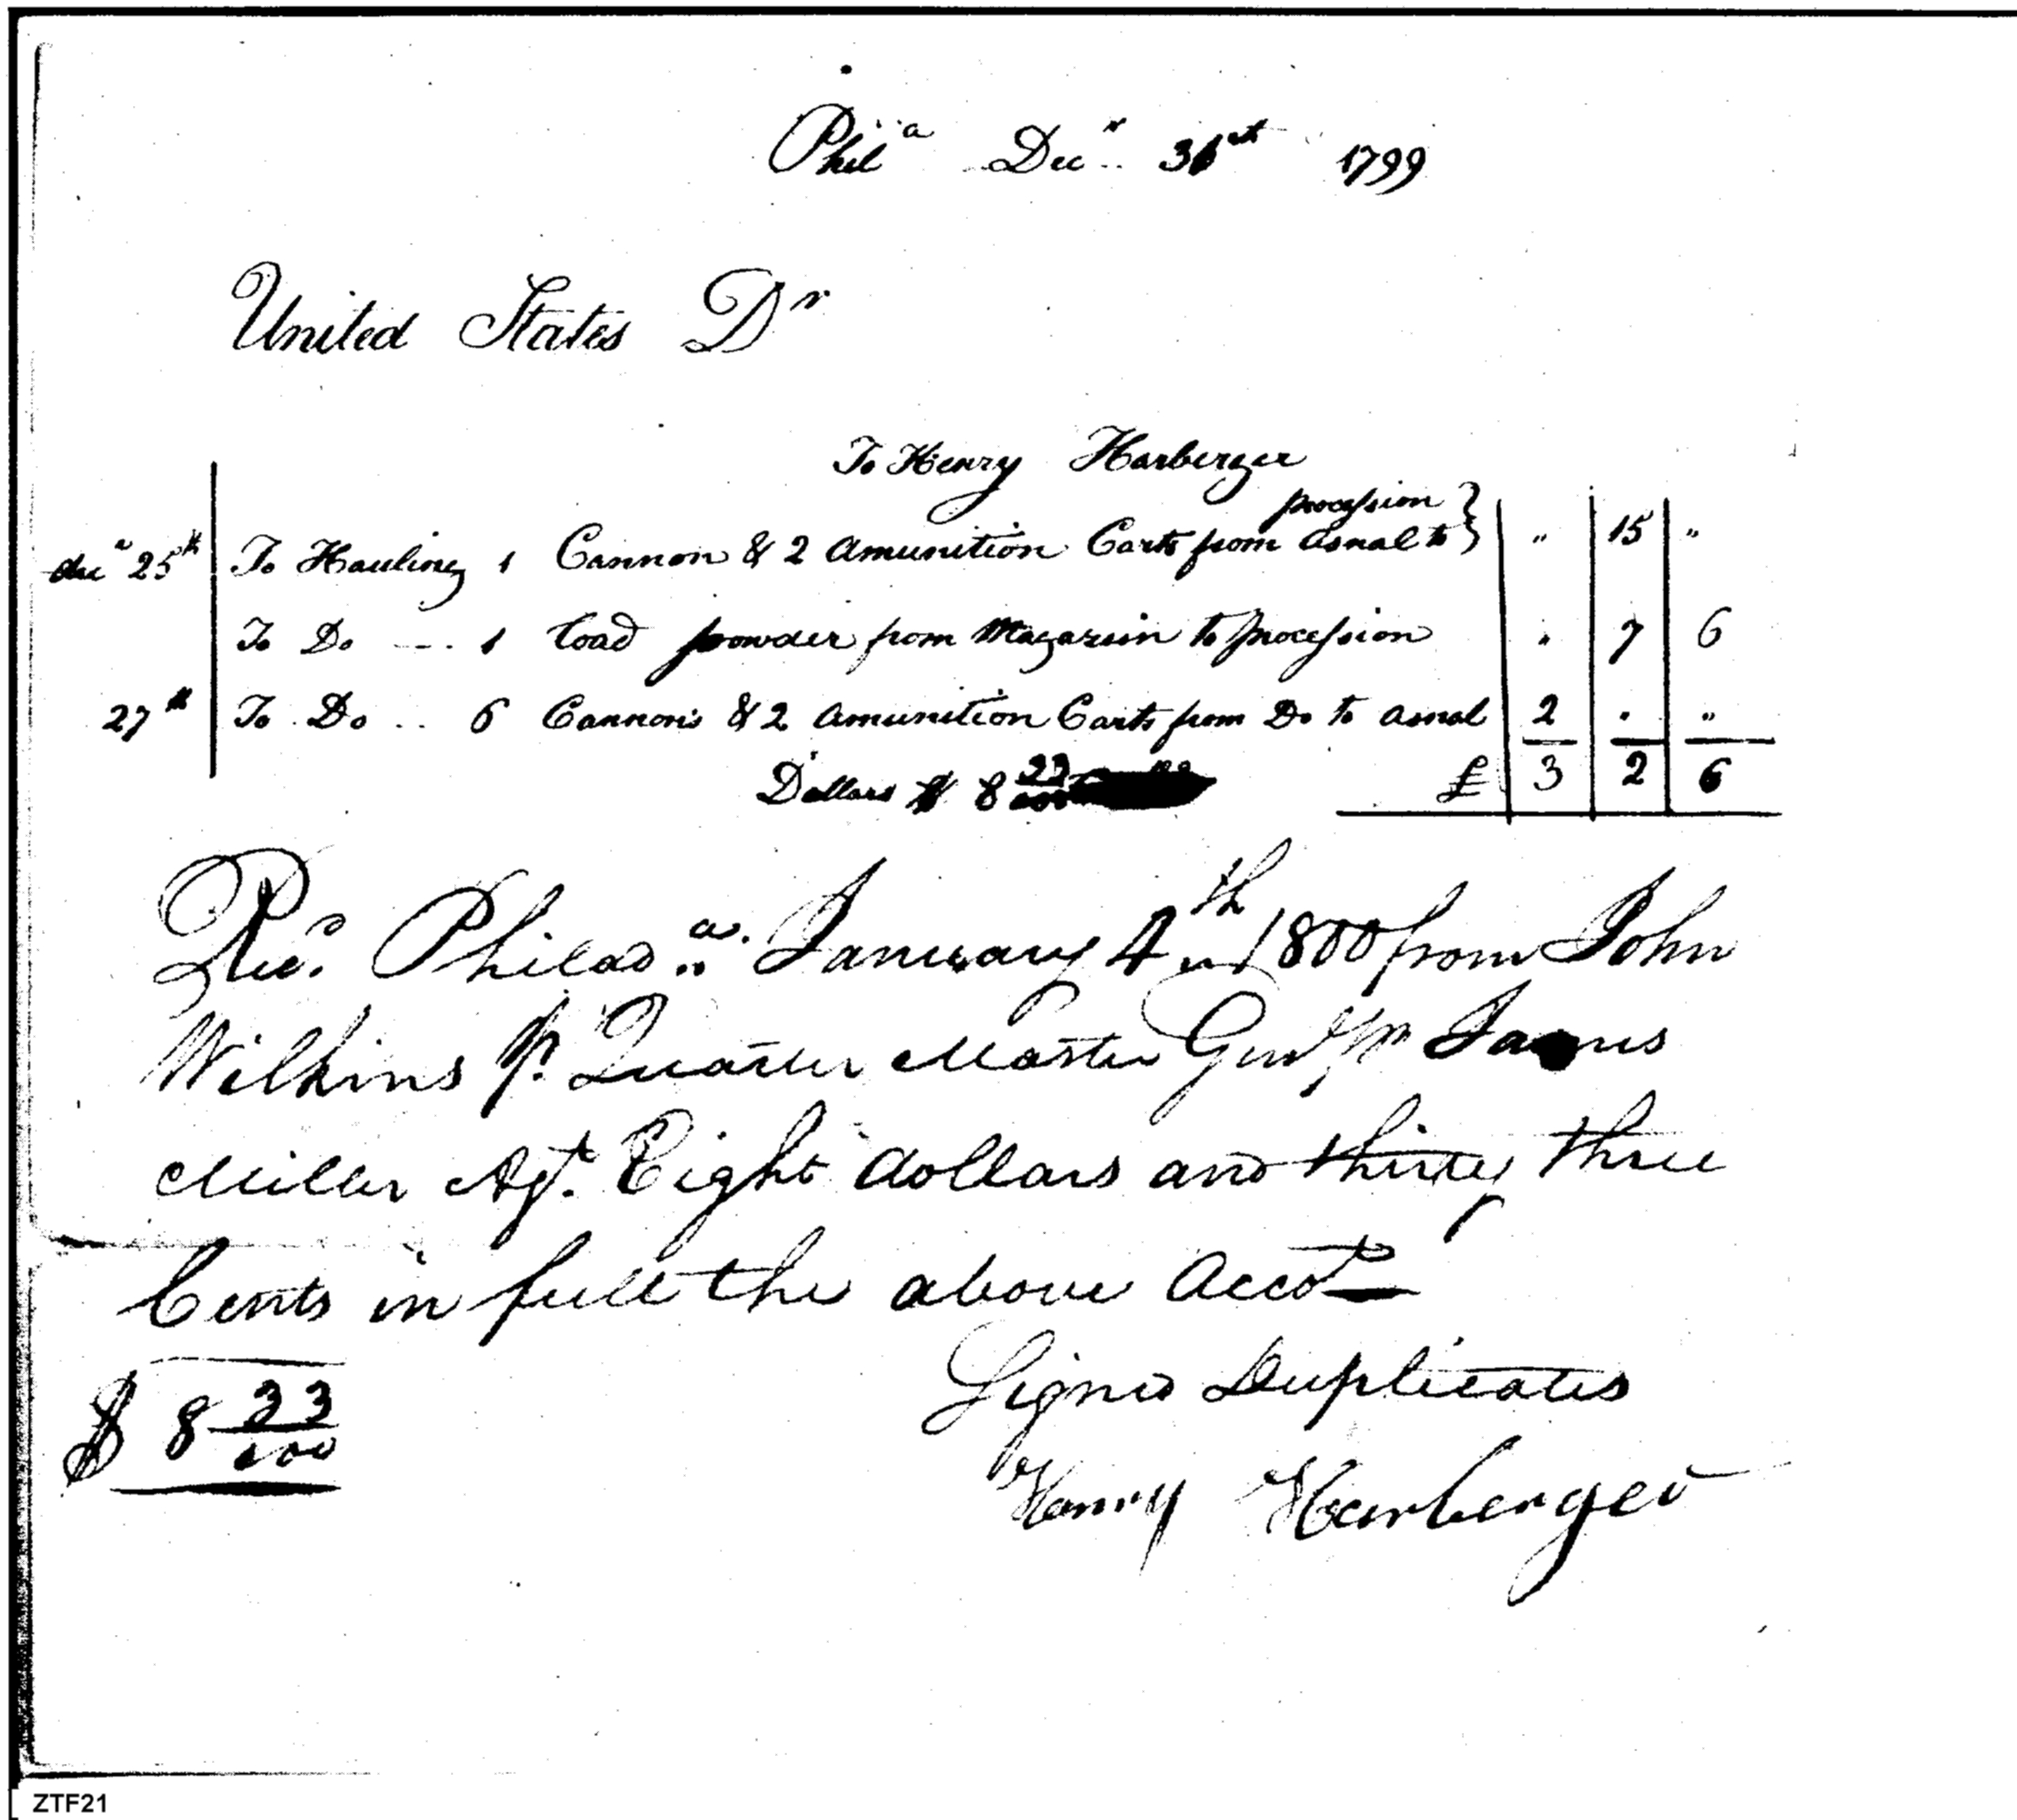 Phila Decr 31st 1799
United States Dr
To Henry Harberger
procession
decr 25th To Hauling 1 Cannon & 2 Amunition Carts from Asnal to } " 15 "
To Do --- 1 Load powder from Magazein to procession " 7 6
27th To Do .. 6 Cannons & 2 Amunition Carts from Do to Asnal 2 " "
Dollars $ 8 33/100 £ 3 2 6
Recd. Philada. January 4th 1800 from John
Wilkins Jr. Quarter Master Genl pr James
Miller Agt. Eight dollars and thirty three
Cents in full the above Acct
$ 8 33/100 Signed Duplicates
Henry Harberger
ZTF21